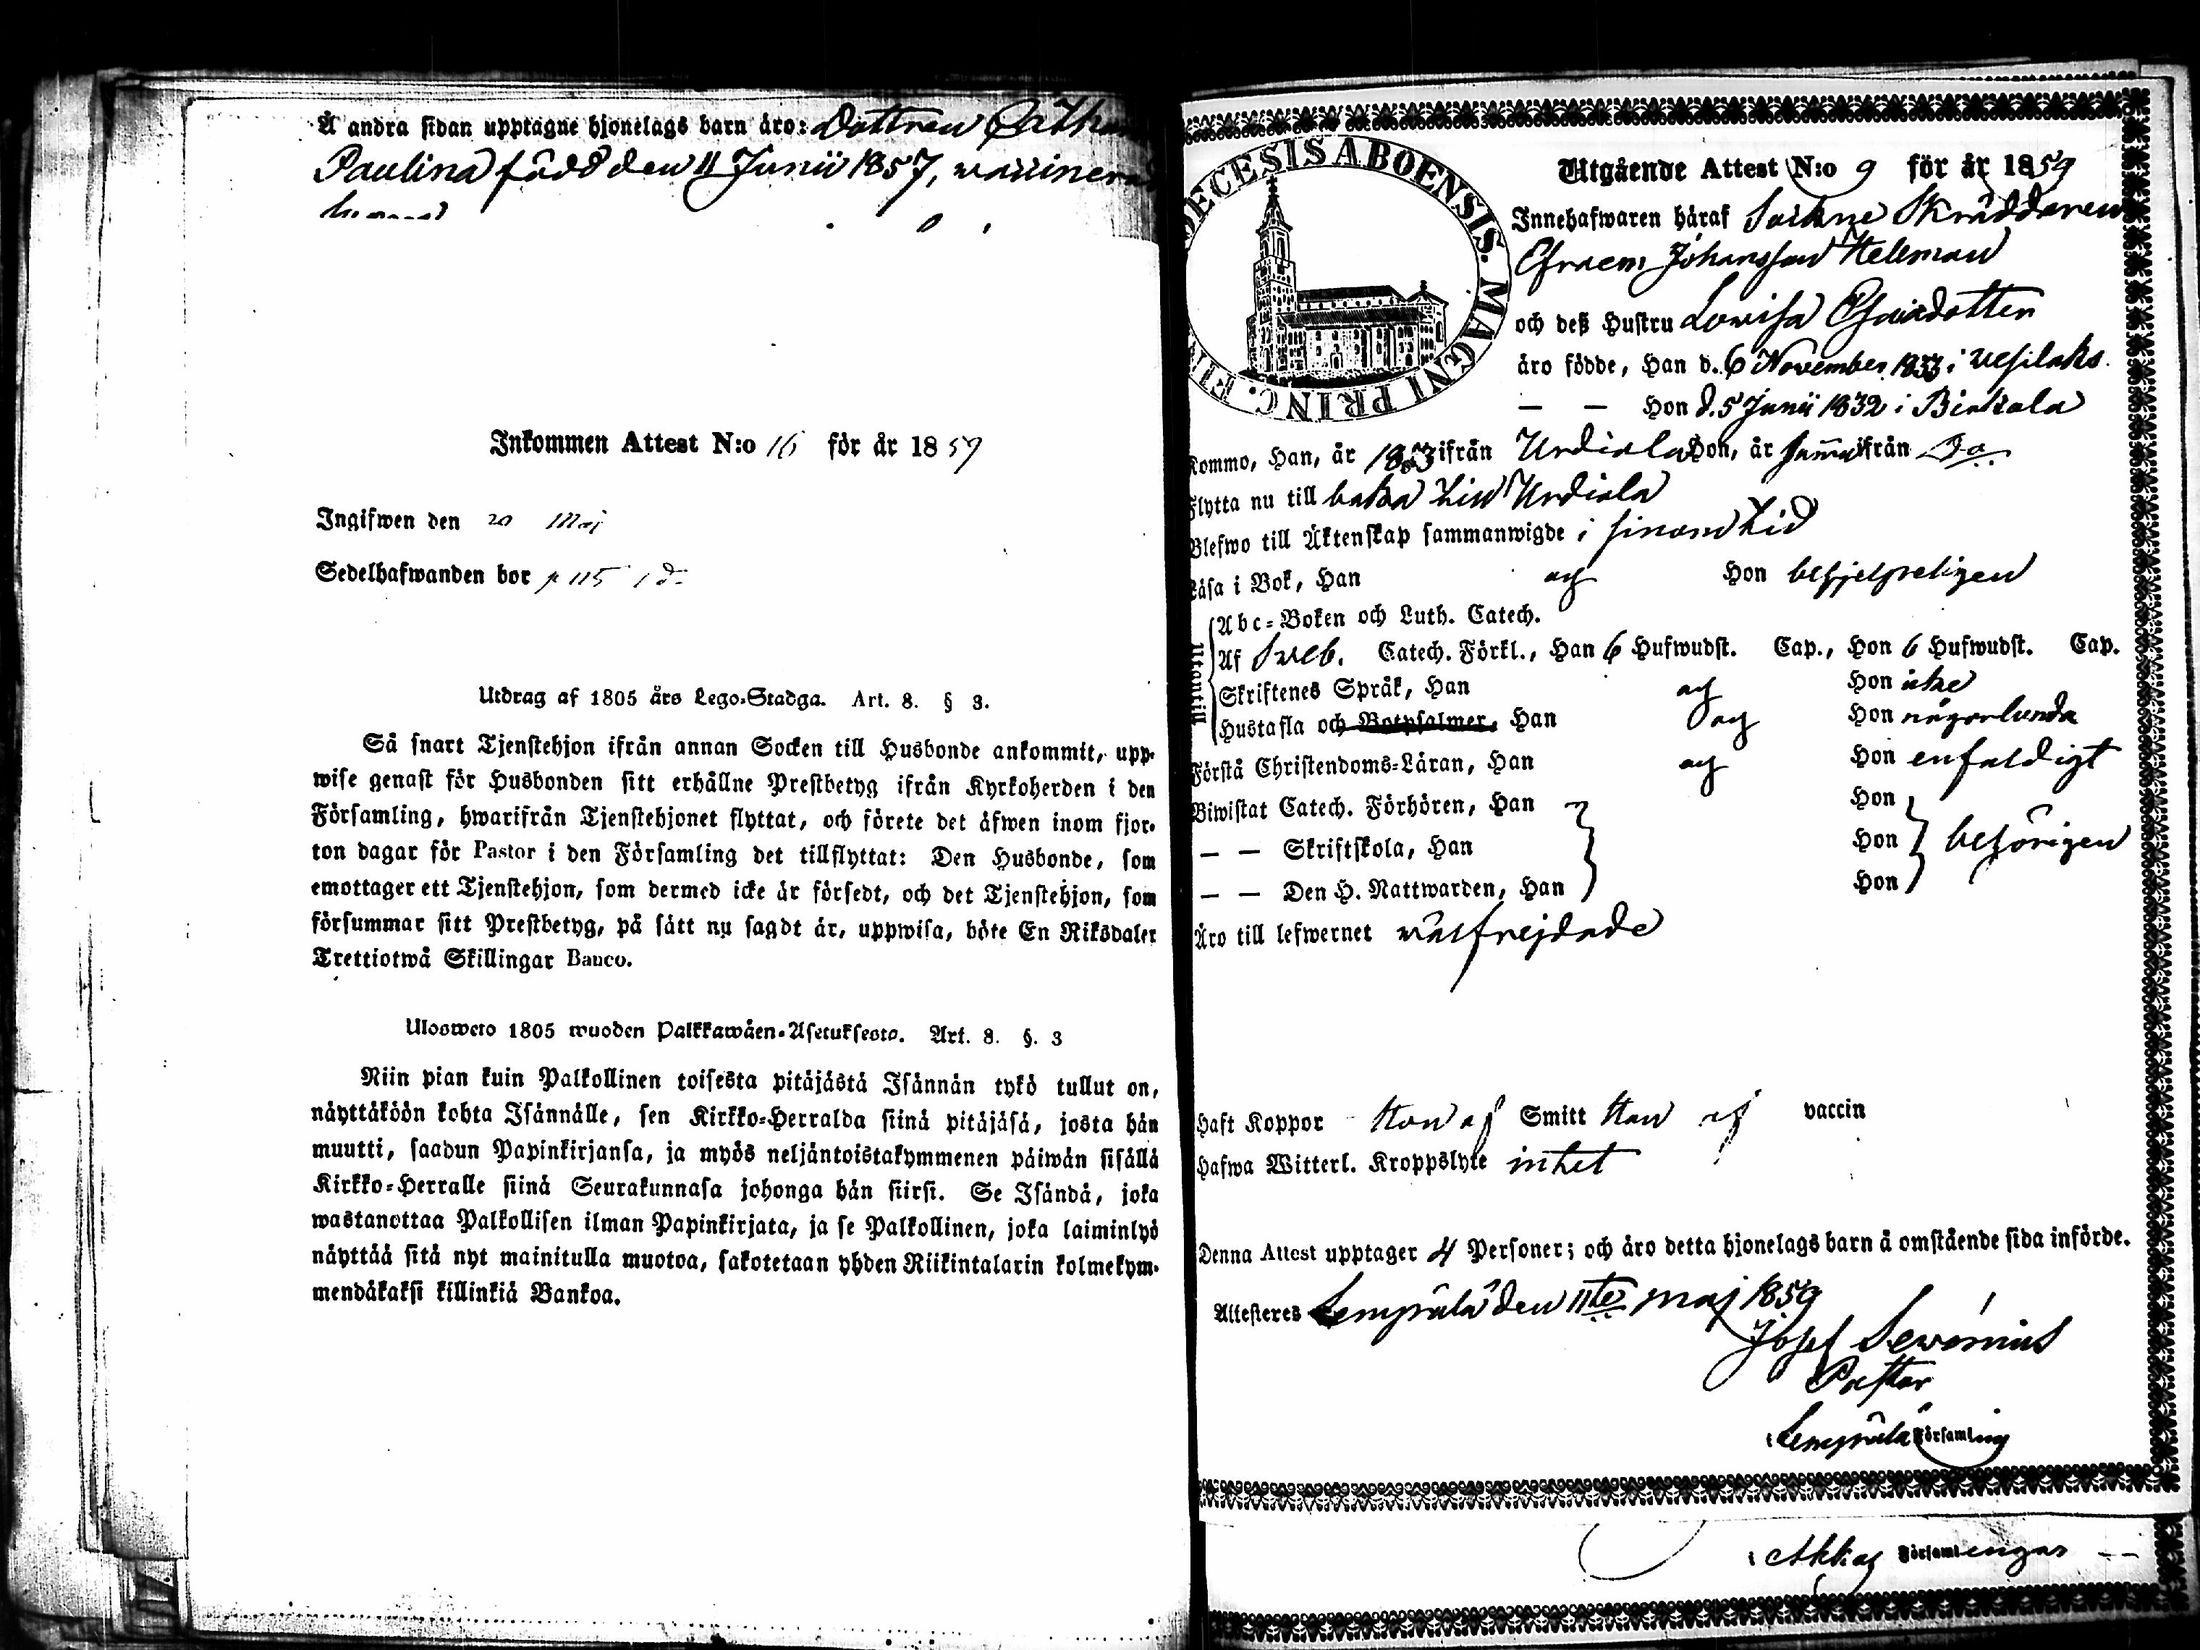 Å andra sidan upptagne hjonelags barn äro: Dottren
Paulina född den 11 Junii 1857,
Inkommen Attest N:o 16 för år 1859
Ingifwen den 20 Maj
Sedelhafwanden bor p 115
Utdrag af 1805 års Lego-Stadga. Art. 8. § 3.
Så snart Tjenstehjon ifrån annan Socken till Husbonde ankommit, upp-
wise genast för Husbonden sitt erhållne Prestbetyg ifrån Kyrkoherden i den
Församling, hwarifrån Tjenstehjonet flyttat, och förete det äfwen inom fjor-
ton dagar för Pastor i den Församling det tillflyttat: Den Husbonde, som
emottager ett Tjenstehjon, som dermed icke är försedt, och det Tjenstehjon, som
försummar sitt Prestbetyg, på sätt nu sagdt är, uppwisa, böte En Riksdaler
Trettiotwå Skillingar Banco.
Ulosweto 1805 wuoden Palkkawäen-Asetuksesta. Art. 8. §. 3
Niin pian kuin Palkollinen toisesta pitäjästä Isännän tykö tullut on,
näyttäköön kohta Isännälle, sen Kirkko-Herralda siinä pitäjäsä, josta hän
muutti, saadun Papinkirjansa, ja myös neljäntoistakymmenen päiwän sisällä
Kirkko-Herralle siinä Seurakunnasa johonga hän siirsi. Se Isändä, joka
wastanottaa Palkollisen ilman Papinkirjata, ja se Palkollinen, joka laiminlyö
näyttää sitä nyt mainitulla muotoa, sakotetaan yhden Riikintalarin kolmekym-
mendäkaksi killinkiä Bankoa.
DECESIS ABOENSIS. MAGNI PRINC. FI
Utgående Attest N:o 9 för år 1859
Innehafwaren häraf Sockne Skräddaren
Efraem Johansson Hellman
och deß Hustru Lowisa Esaiadotter
äro födde, Han d. 6 November 1833 i Wesilaks
— — Hon d. 5 Junii 1832 i Birkala
Kommo, Han, år 1853 ifrån Urdiala Hon, år samma ifrån Do
Flytta nu till baka till Urdiala
Blefwo till Äktenskap sammanwigde i sinom tid
Läsa i Bok, Han och Hon behjelpeligen
Utantill
Abc-Boken och Luth. Catech.
Af Sveb. Catech. Förkl., Han 6 Hufwudst. Cap., Hon 6 Hufwudst. Cap.
Skriftenes Språk, Han och Hon icke
Hustafla och Botpsalmer, Han och Hon någorlunda
Förstå Christendoms-Läran, Han och Hon enfaldigt
Biwistat Catech. Förhören, Han Hon
— — Skriftskola, Han Hon behörigen
— — Den H. Nattwarden, Han Hon
Äro till lefwernet wälfrejdade
Haft Koppor Hon Smitt Han vaccin
Hafwa Witterl. Kroppslyte intet
Denna Attest upptager 4 Personer; och äro detta hjonelags barn å omstående sida införde.
Attesteres Lempäälä den 11te Maj 1859
Josef Sewonius
Pastor
i Lempäälä Församling
i Akkas Församlingar